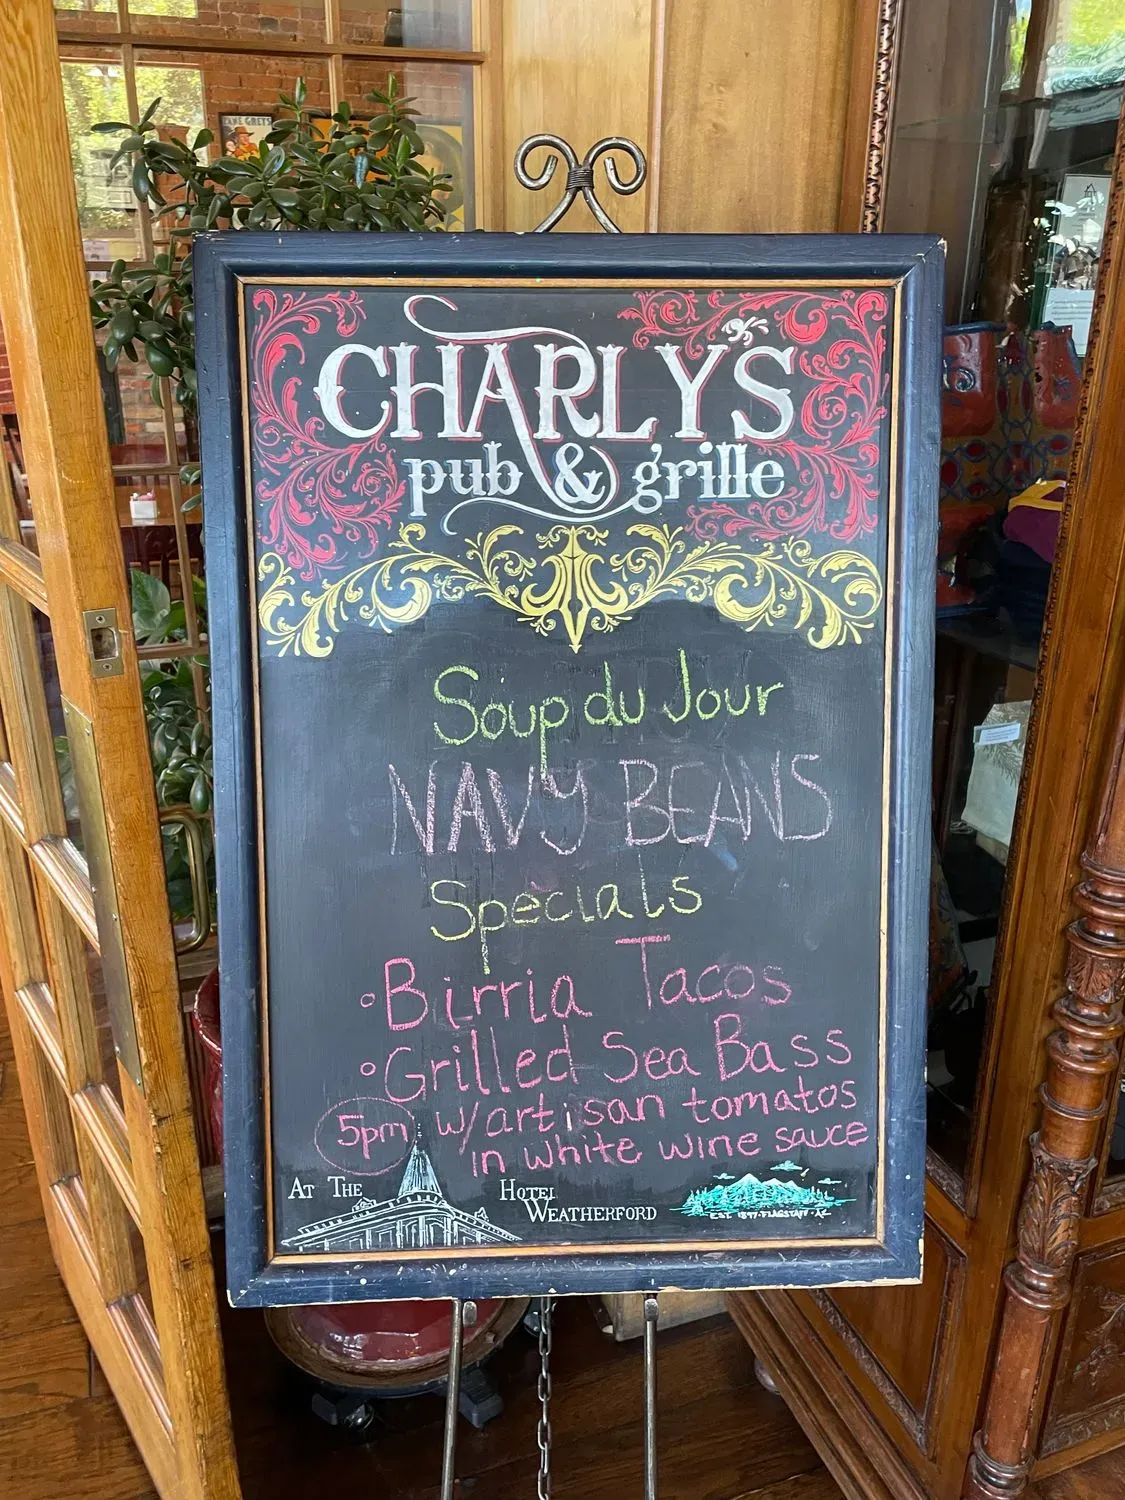 ZANE GREY'S
CHARLY'S
pub & grille
Soup du Jour
NAVY BEANS
Specials
Birria Tacos
Grilled Sea Bass
5pm w/artisan tomatos
in white wine sauce
AT THE HOTEL
WEATHERFORD
EST. 1897·FLAGSTAFF·AZ